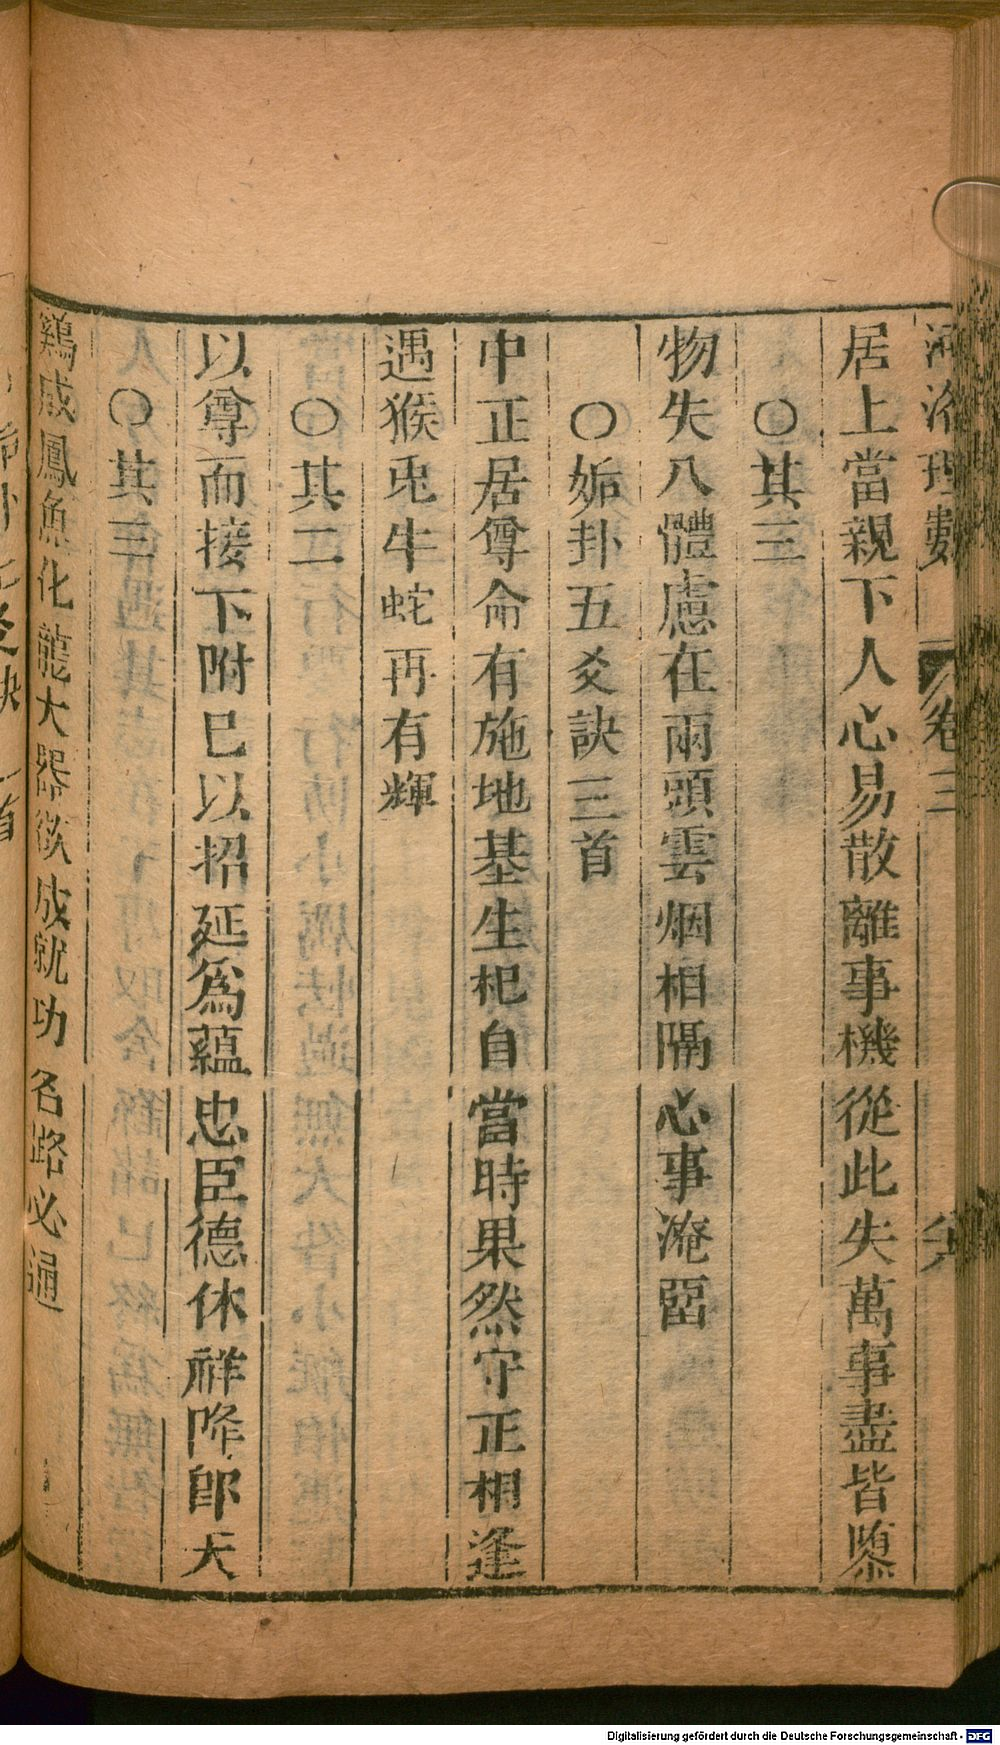 河洛理數 卷三
居上當親下人心易散離事機從此失萬事盡皆隳
〇其三
物失八體慮在兩頭雲烟相隔心事淹畱
〇姤卦五爻訣三首
中正居尊命有施地基生杞自當時果然守正相逢
遇猴兎牛蛇再有輝
〇其二
以尊而接下附巳以招延爲蘊忠臣德休祥降郎天
〇其三
鷄成鳳魚化龍大器欲成就功名路必通
Digitalisierung gefördert durch die Deutsche Forschungsgemeinschaft - DFG